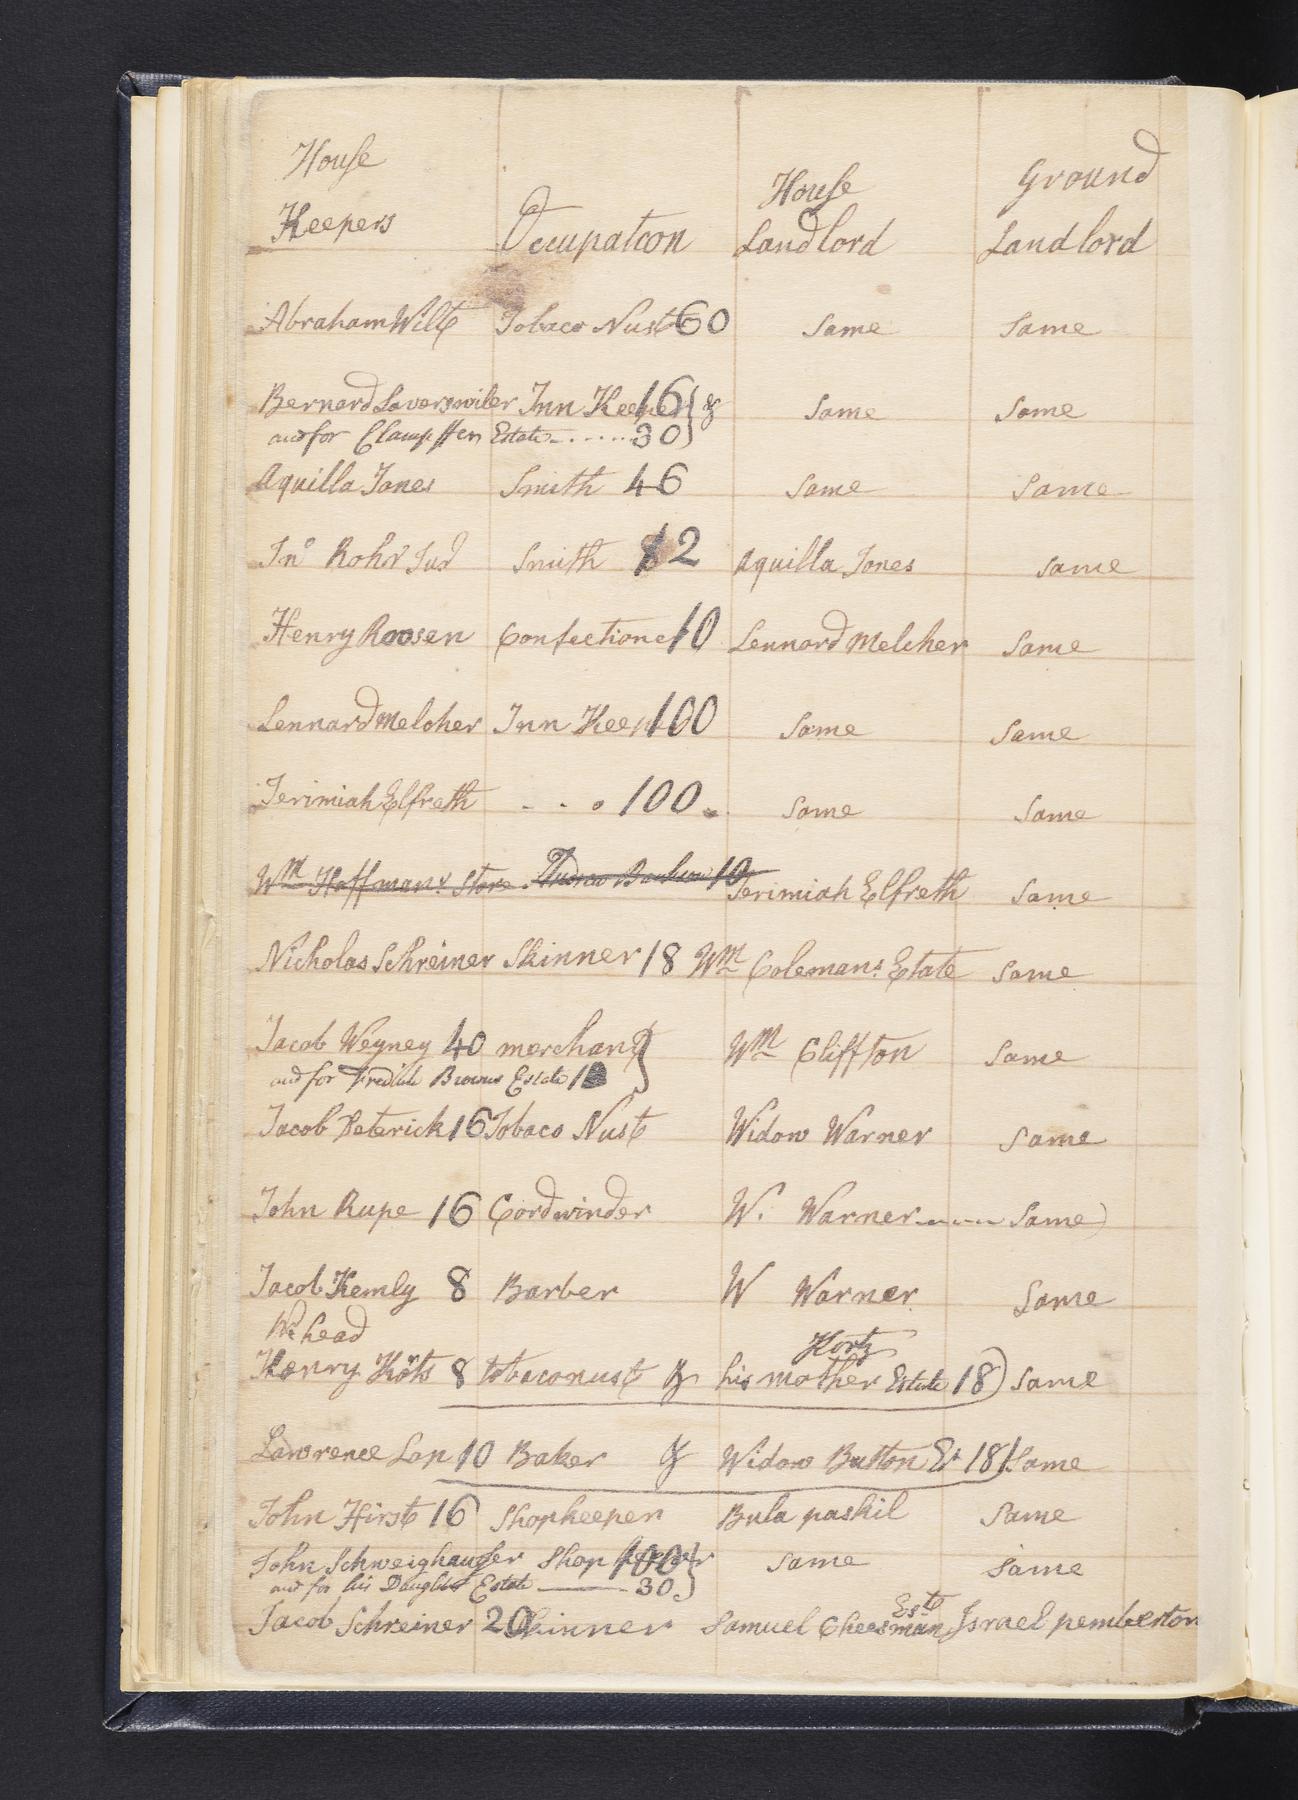 House
Keepers Occupation House Landlord Ground Landlord
Abraham Wilt Tobaco Nust 60 Same Same
Bernard Laverswiler Inn Keeper 16 & Same Same
and for Clampffen Estate 30
Aquilla Jones Smith 46 Same Same
Jno Rohr Smith 12 Aquilla Jones Same
Henry Roosen Confectione 10 Lennard Melcher Same
Lennard Melcher Inn Keep 100 Same Same
Jerimiah Elfreth 100 Same Same
Wm Hoffmans Store 10 Jerimiah Elfreth Same
Nicholas Schreiner Skinner 18 Wm Colemans Estate Same
Jacob Weyney 40 merchant Wm Cliffton Same
and for Fredick Browns Estate
Jacob Deterick 16 Tobaco Nust Widow Warner Same
John Rupe 16 Cordwinder W. Warner Same
Jacob Kemly 8 Barber W Warner Same
head Kortz
Henry Kots 8 tobaconust & his mother Estate 18 Same
Lawrence Lap 10 Baker & Widow Button Es 18 Same
John Hirst 16 Shopkeeper Bula paskil Same
John Schweighauser Shop 100 Same Same
and for his Daughter Estate 30
Jacob Schreiner 20 Skinner Samuel Cheesman Est Israel pemberton